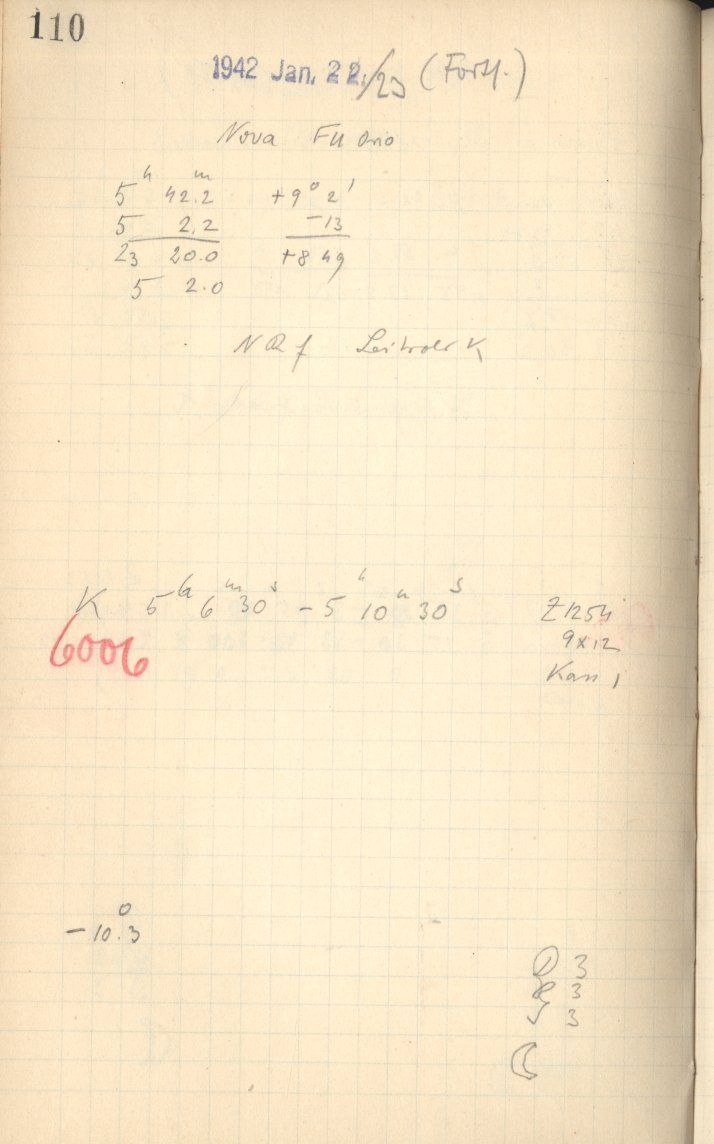 110
1942 Jan. 22./23 (Forts.)
Nova FU Orio
5ʰ 42.2ᵐ +9° 2'
5 2.2 -13
23 20.0 +8 49
5 2.0
Leitrohr K
K 5ʰ 6ᵐ 30ˢ - 5ʰ 10ᵐ 30ˢ
6006
9x12
Kass 1
-10.3°
3
3
3